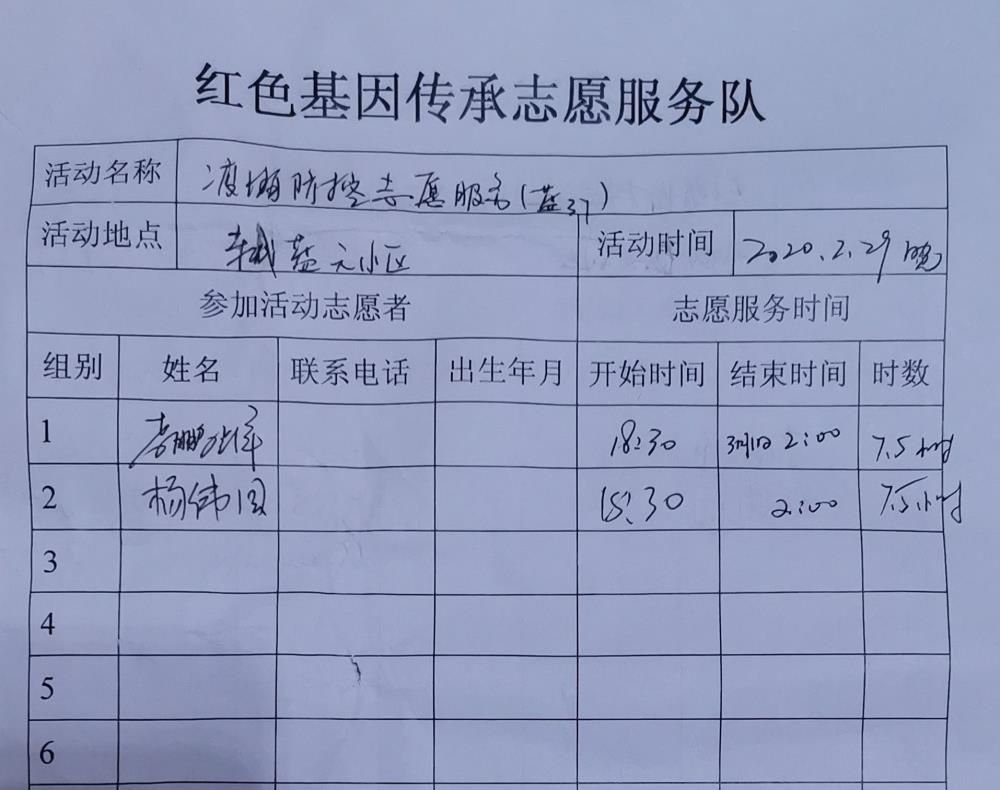 红色基因传承志愿服务队
活动名称 防控志愿服务
活动地点 蓝元小区 活动时间 2020.2.29 晚
参加活动志愿者 志愿服务时间
组别 姓名 联系电话 出生年月 开始时间 结束时间 时数
1 18:30 3月1日 2:00 7.5小时
2 杨伟国 18:30 2:00 7.5小时
3
4
5
6